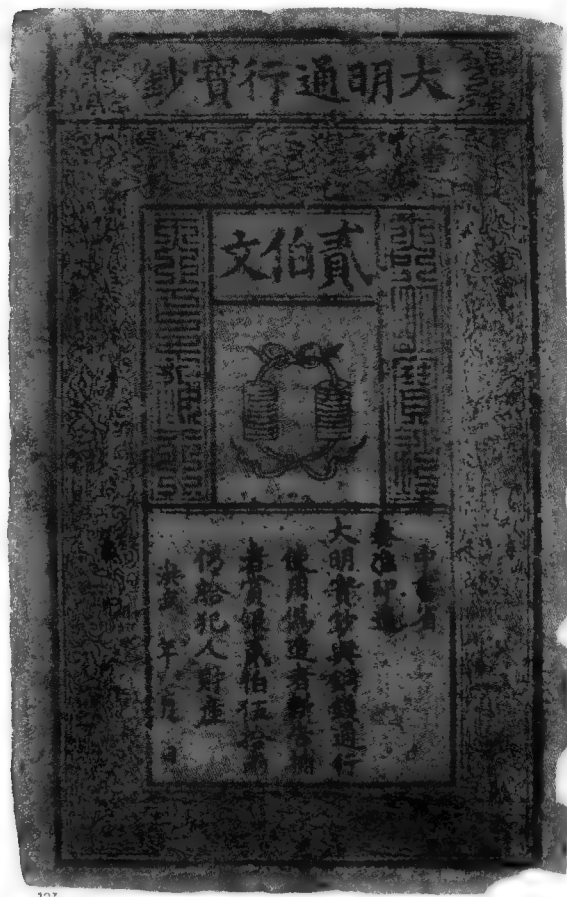 大明通行寶鈔
貳伯文
大明寶鈔
天下通行
中書省
奏准印造
大明寶鈔與銅錢通行
使用偽造者斬告捕
者賞銀貳伯伍拾兩
仍給犯人財產
洪武 年 月 日